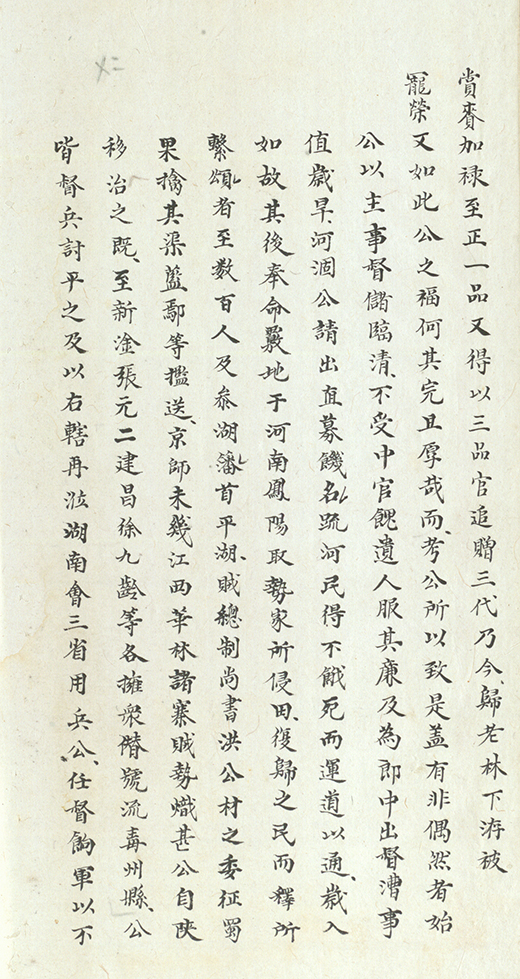 賞賚加祿至正一品又得以三品官追贈三代乃今歸老林下洊被
寵榮又如此公之福何其完且厚哉而考公所以致是盖有非偶然者始
公以主事督儲臨清不受中官餽遺人服其廉及為郎中出督漕事
值歲旱河涸公請出直募饑名疏河民得不餓死而運道以通歲入
如故其後奉命覈地于河南鳳陽取勢家所侵田復歸之民而釋所
繫頌者至数百人及叅湖藩首平湖賊總制尚書洪公材之委征蜀
果擒其渠藍鄢等檻送京師未幾江西華林諸寨賊勢熾甚公自陝
移治之既至新淦張元二建昌徐九齡等各擁衆僭號流毒州縣公
皆督兵討平之及以右轄再涖湖南會三省用兵公任督餉軍以不